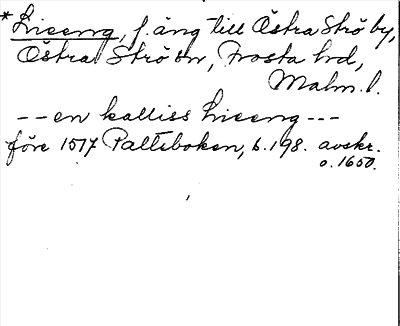 *Lrieeng, f. äng till Östra Strö by,
Östra Strö sn, Frosta hd,
Malm. l.
-- en kalliss Lrieeng ---
före 1517 Palteboken, s. 198. avskr.
o. 1650.